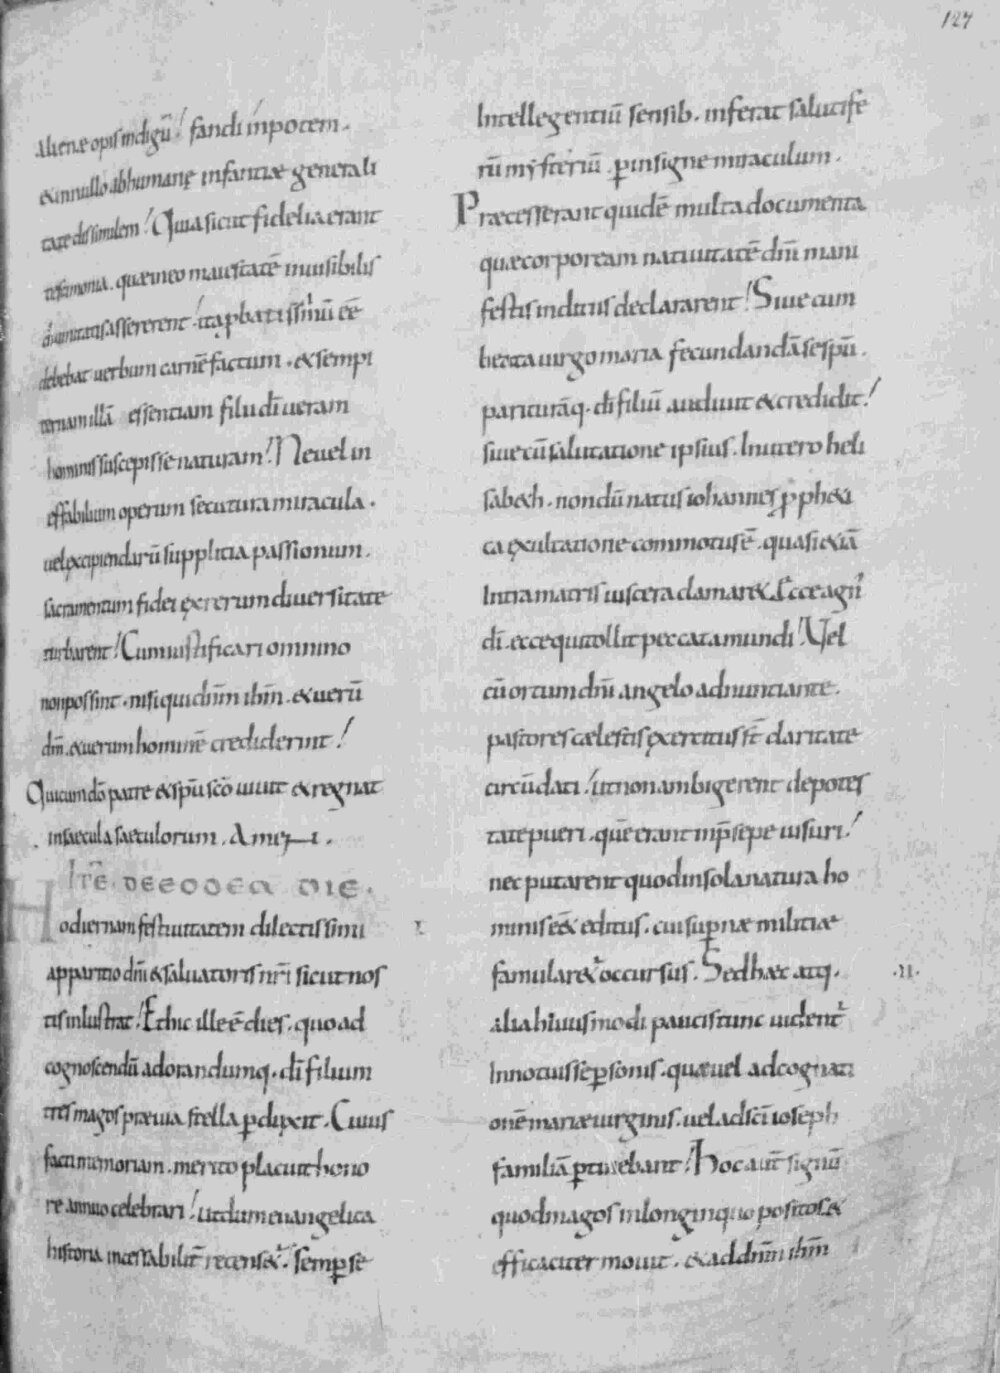 127
alienae opis indigũ! fandi inpotem.
& in nullo ab humanę infantiae generali
tate dissimilem! Quia sicut fidelia erant
testimonia. quae in eo maiestatẽ inuisibilis
diuinitatis assererent! ita ꝓbatissimũ eẽ
debebat uerbum carnẽ factum. & sempi
ternam illã essentiam filii dī ueram
hominis suscepisse naturam! Ne uel in
effabilium operum secutura miracula.
uel excipiendarũ supplicia passionum.
sacramentum fidei ex rerum diuersitate
turbarent! Cum iustificari omnino
non possint. nisi qui dn̄m ih̄m. & uerũ
dm̄. & uerum hominẽ crediderint!
Qui cum dõ patre & sp̄u sc̄o uiuit & regnat
in saecula saeculorum. Amen.
ITẼ. DE EODEM DIE.
Hodiernam festiuitatem dilectissimi
apparitio dn̄i & saluatoris nr̄i sicut nos
tis inlustrat! Et hic ille ẽ dies. quo ad
cognoscendũ adorandumq. dī filium
tres magos praeuia stella ꝑduxit. Cuius
facti memoriam. merito placuit hono
re annuo celebrari! ut dum euangelica
historia incessabilit̃ recens&ur. semꝑ se
Intellegentiũ sensib. inferat salutife
rũ mysteriũ. ꝑ insigne miraculum.
Praecesserant quidẽ multa documenta
quae corpoream natiuitatẽ dn̄i mani
festis indiciis declararent! Siue cum
beata uirgo maria fecundandã se sp̄u.
parituramq. dī filiũ audiuit & credidit!
siue cũ salutatione ipsius. In utero heli
sab&h. nondũ natus iohannes ꝓph&i
ca exultatione commotus ẽ. quasi &iã
Intra matris uiscera clamar&. Ecce agn'
dī. ecce qui tollit peccata mundi! Vel
cũ ortum dn̄i angelo adnuntiante.
pastores caelestis exercitus st̄ claritate
circũdati! ut non ambigerent de potes
tate pueri. quẽ erant in p̄sepe uisuri!
nec putarent quod in sola natura ho
minis eẽ& editus. cui supernae militiae
famular&ur occursus. Sed haec atq.
.II.
alia huiusmodi paucis tunc uident'
Innotuisse ꝑsonis. quae uel ad cognati
onẽ mariae uirginis. uel ad sc̄i ioseph
familiã ꝑtinebant! Hoc aut̃ signũ
quod magos in longinquo positos. &
efficaciter mouit. & ad dn̄m ih̄m